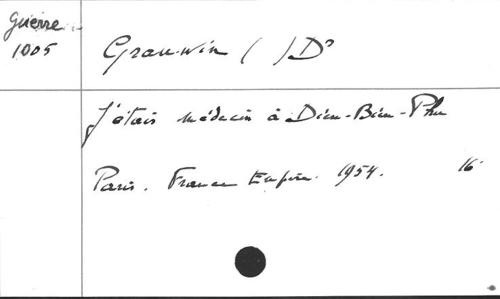 Guerre
1005
Grauwin ( ) Dr
J'étais médecin à Dien-Bien-Phu
Paris. France Empire. 1954. 16